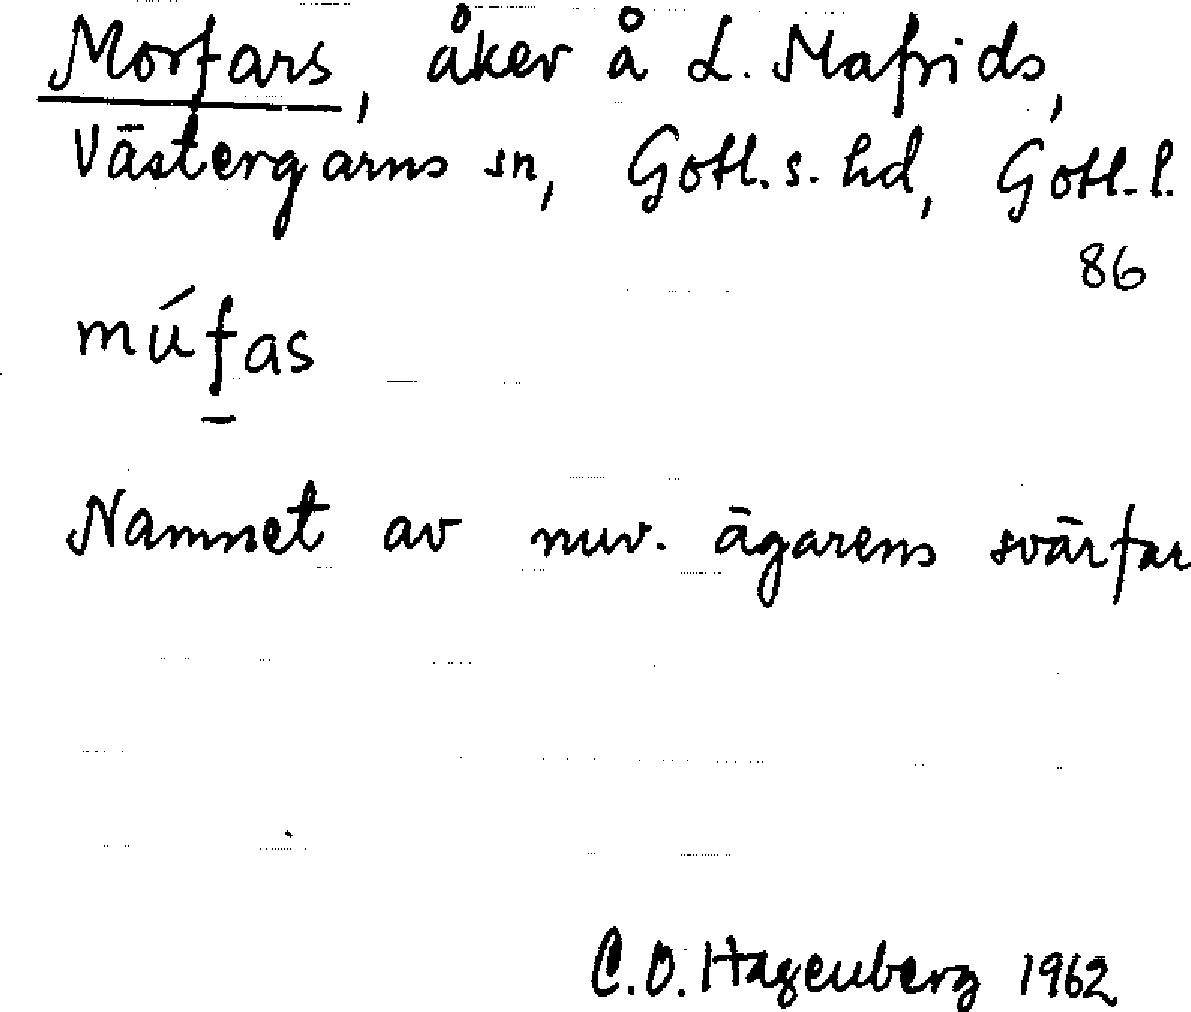 Morfars, åker å L. Mafrids,
Västergarns sn, Gotl. s. hd, Gotl. l.
86
múfas
Namnet av nuv. ägarens svärfar
C. O. Hagenberg 1962